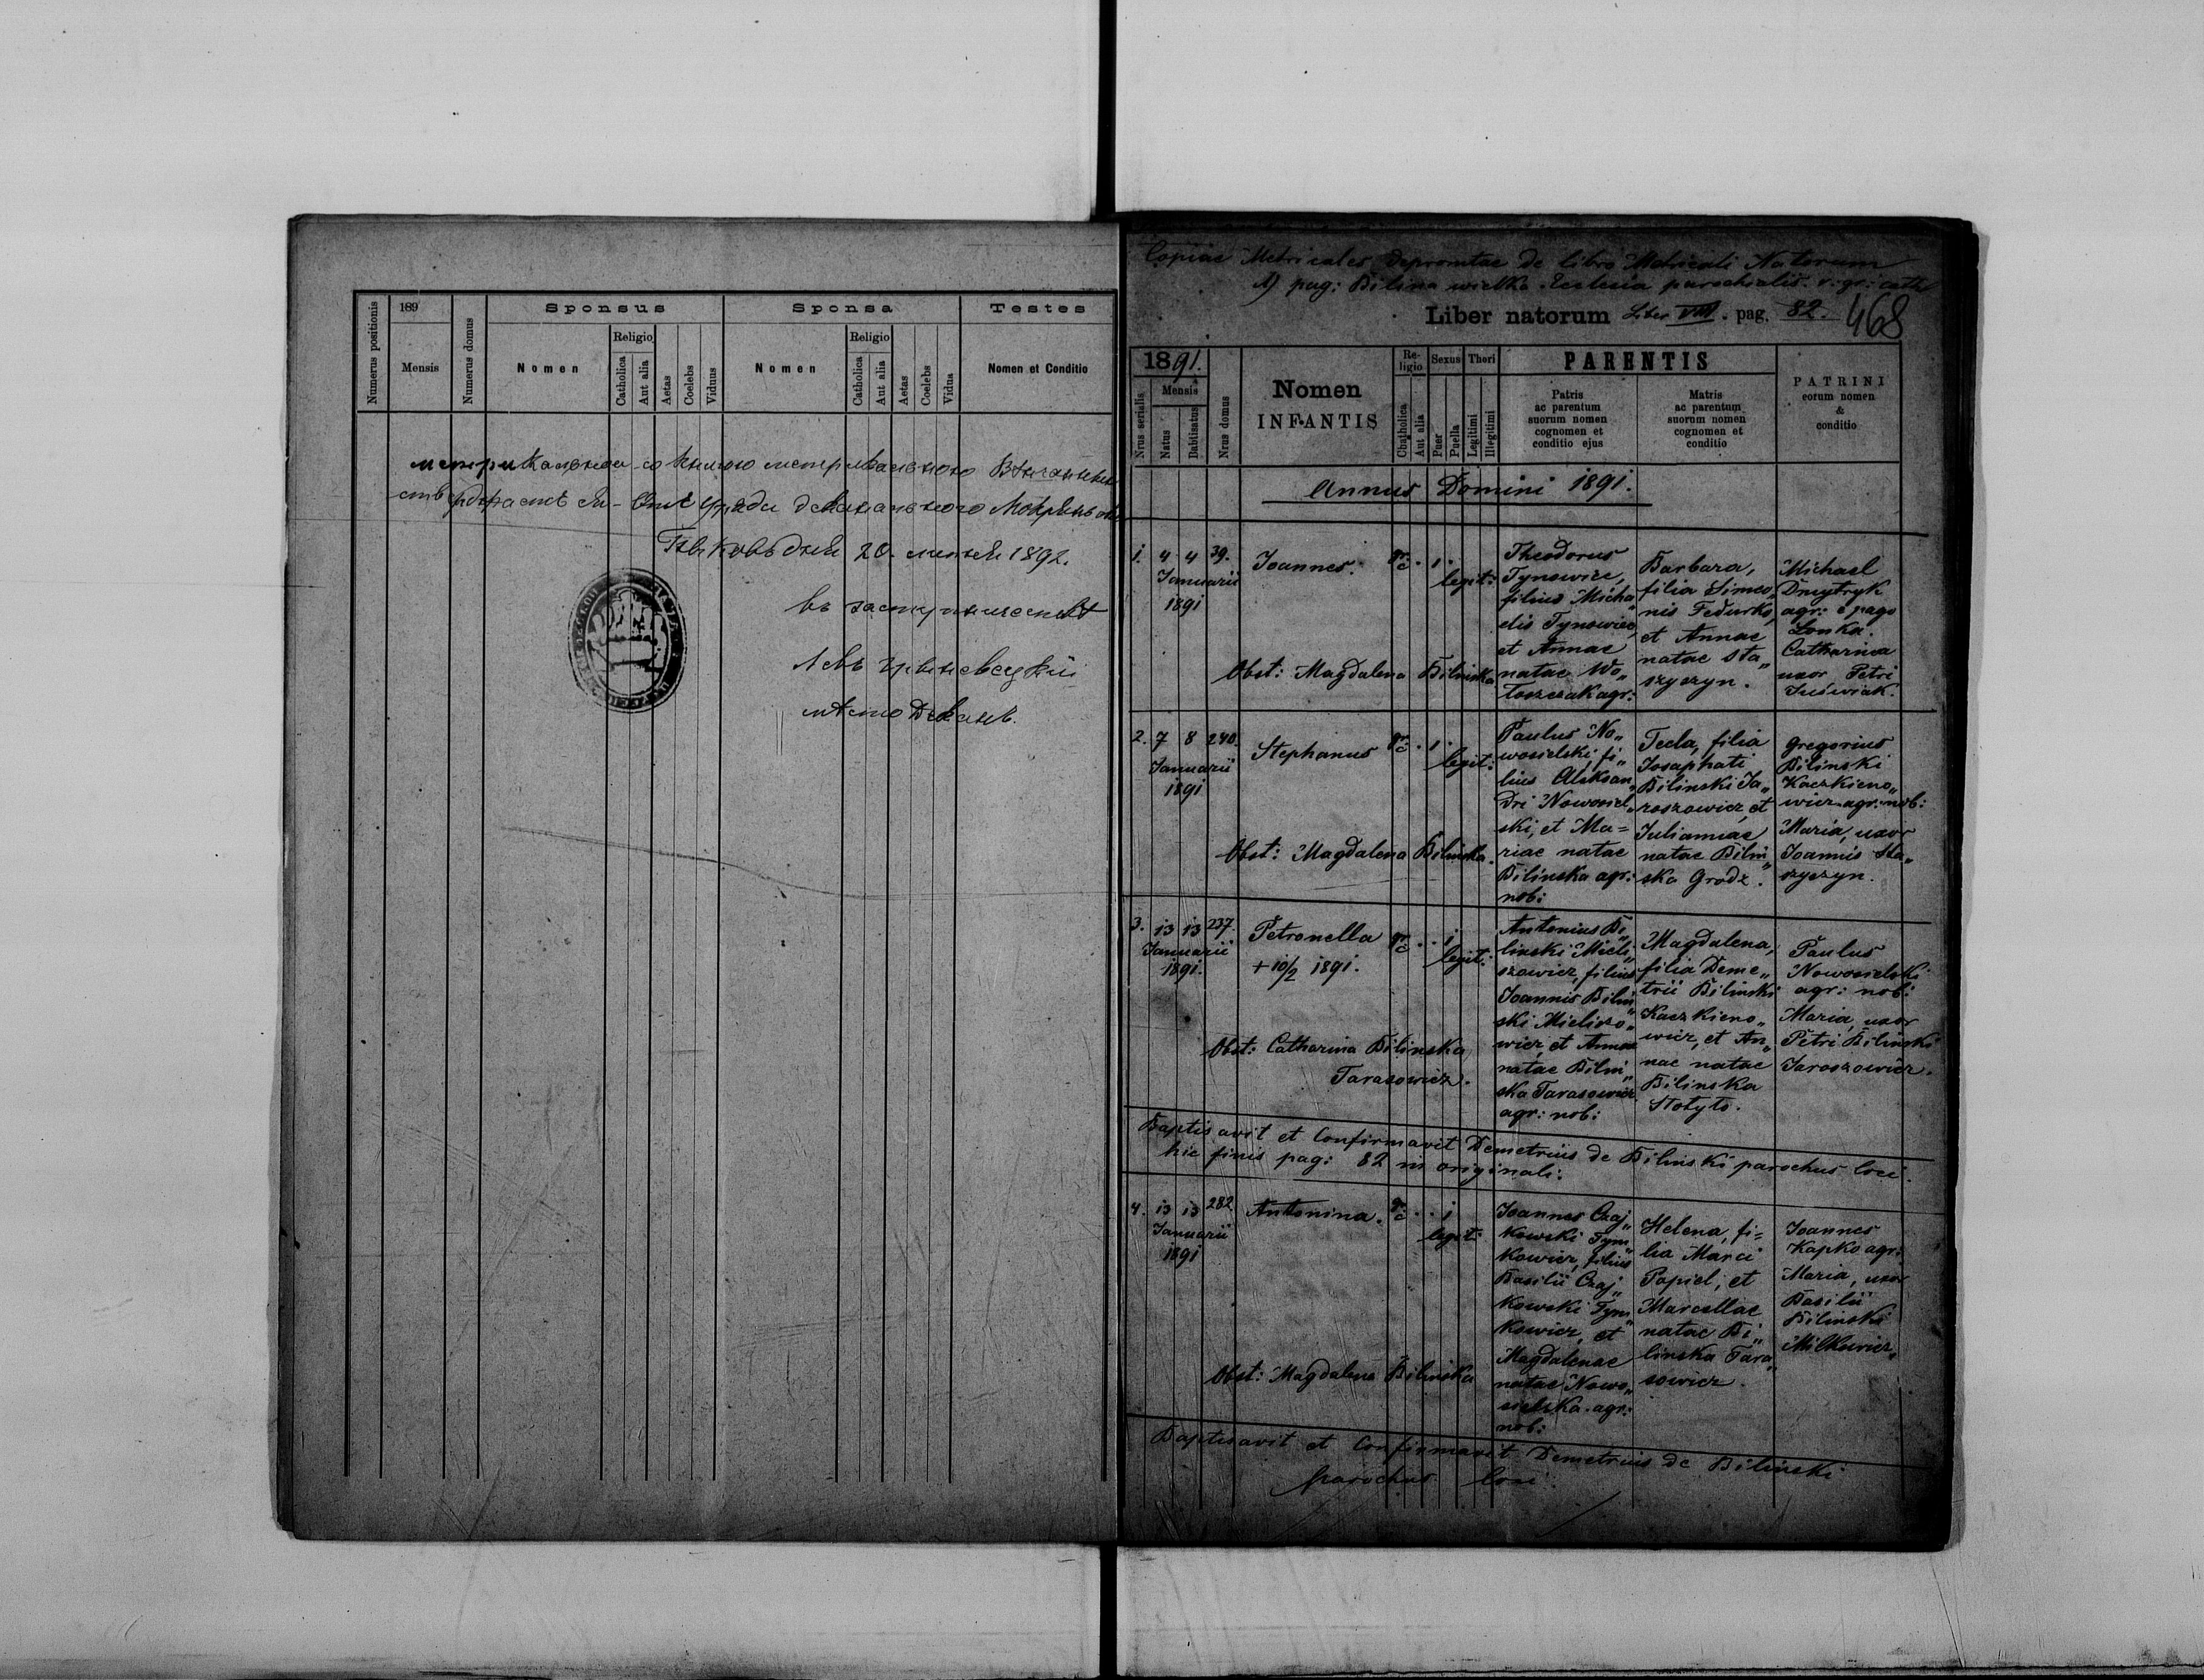 189
Sponsus
Sponsa
Testes
Numerus positionis
Mensis
Numerus domus
Nomen
Religio
Catholica
Aut alia
Aetas
Coelebs
Viduus
Nomen
Religio
Catholica
Aut alia
Aetas
Coelebs
Vidua
Nomen et Conditio
20. 1892.
Copiae Metricales depromtae de libro Metricali Natorum
pag: Bilina wielka Ecclesia parochialis r: gr: cath
Liber natorum Liber VIII. pag. 82. 468
1891.
Nrus serialis
Mensis
Natus
Babtisatus
Nrus domus
Nomen
INFANTIS
Religio
Chatholica
Aut alia
Sexus
Puer
Puella
Thori
Legitimi
Illegitimi
PARENTIS
Patris
ac parentum
suorum nomen
cognomen et
conditio ejus
Matris
ac parentum
suorum nomen
cognomen et
conditio
PATRINI
eorum nomen
&
conditio
Annus Domini 1891.
1. 4 4 39.
Januarii
1891
Joannes.
gr. c. . 1 .
legit:
Obst: Magdalena Bilinska
Theodorus
Tynowiec,
filius Micha„
elis Tynowiec,
et Annae
natae Wo„
łoszczak agr:
Barbara,
filia Simeo„
nis Fedurko,
et Annae
natae Sta„
szyszyn.
Michael
Dmytryk
agr: e pago
Łonka.
Catharina
uxor Petri
2. 7 8 240.
Januarii
1891
Stephanus
gr. c. . 1 .
legit:
Obst: Magdalena Bilinska.
Paulus No„
wosielski, fi„
lius Aleksan„
dri Nowosiel„
ski, et Ma=
riae natae
Bilinska agr:
nob:
Tecla, filia
Josaphati
Bilinski Ja„
roszowicz, et
Julianiae
natae Bilin„
ska Grodz.
Gregorius
Bilinski
Kaczkieno„
wicz agr: nob:
Maria, uxor
Joannis Sta„
szyszyn.
3. 13 13 237.
Januarii
1891.
Petronella
+ 10/2 1891.
gr. c. . . 1
legit:
Obst: Catharina Bilinska
Tarasowicz.
Antonius Bi„
linski Mieli„
szowicz, filius
Joannis Bilin„
ski Mieliszo„
wicz, et Annae
natae Bilin„
ska Tarasowicz
agr: nob:
Magdalena,
filia Deme„
trii Bilinski
Kaczkieno„
wicz, et An„
nae natae
Bilinska
Paulus
Nowosielski
agr: nob:
Maria, uxor
Petri Bilinski
Jaroszowicz.
Baptisavit et Confirmavit Demetrius de Bilinski parochus loci.
hic finis pag: 82 in originali.
4. 13 13 282.
Januarii
1891
Antonina.
gr. c. . . 1
legit:
Obst: Magdalena Bilinska
Joannes Czaj„
kowski Tym„
kowicz, filius
Basilii Czaj„
kowski Tym„
kowicz, et
Magdalenae
natae Nowo„
sielska. agr:
nob:
Helena, fi=
lia Marci
Popiel, et
Marcellae
natae Bi„
linska Tara„
sowicz.
Joannes
Kapko agr:
Maria, uxor
Basilii
Bilinski
Milkowicz.
Baptisavit et Confirmavit Demetrius de Bilinski
parochus loci.